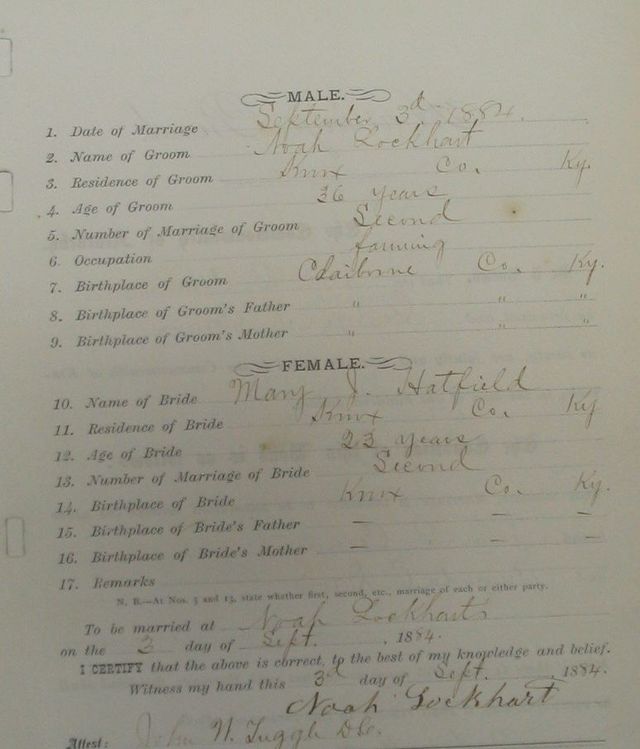 MALE.
1. Date of Marriage September 3d 1884.
2. Name of Groom Noah Lockhart
3. Residence of Groom Knox Co. Ky.
4. Age of Groom 36 years
5. Number of Marriage of Groom Second
6. Occupation farming
7. Birthplace of Groom Claiborne Co. Ky.
8. Birthplace of Groom's Father " " "
9. Birthplace of Groom's Mother " " "
FEMALE.
10. Name of Bride Mary J. Hatfield
11. Residence of Bride Knox Co. Ky
12. Age of Bride 23 years
13. Number of Marriage of Bride Second
14. Birthplace of Bride Knox Co. Ky.
15. Birthplace of Bride's Father — — —
16. Birthplace of Bride's Mother — — —
17. Remarks
N. B.—At Nos. 5 and 13, state whether first, second, etc., marriage of each or either party.
To be married at Noah Lockharts
on the 3 day of Sept. , 1884.
I CERTIFY that the above is correct, to the best of my knowledge and belief.
Witness my hand this 3d day of Sept. , 1884.
Noah Lockhart
Attest: John N. Tuggle D.C.